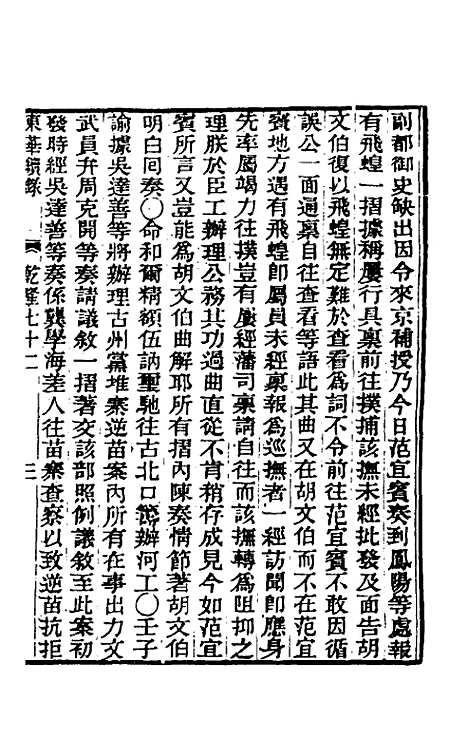 副都御史缺出因令來京補授乃今日范宜賓奏到鳳陽等處報
有飛蝗一摺據稱屢行具稟前往撲捕該撫未經批發及面告胡
文伯復以飛蝗無定難於查看爲詞不令前往范宜賓不敢因循
誤公一面通稟自往查看等語此其曲又在胡文伯而不在范宜
賓地方遇有飛蝗即屬員未經稟報爲巡撫者一經訪聞即應身
先率屬竭力往撲豈有屢經藩司稟請自往而該撫轉爲阻抑之
理朕於臣工辦理公務其功過曲直從不肯稍存成見今如范宜
賓所言又豈能爲胡文伯曲解耶所有摺內陳奏情節著胡文伯
明白回奏○命和爾精額伍訥璽馳往古北口籌辦河工○壬子
諭據吳達善等將辦理古州黨堆寨逆苗案內所有在事出力文
武員弁周克開等奏請議敘一摺著交該部照例議敘至此案初
發時經吳達善等奏係龔學海差人往苗寨查察以致逆苗抗拒
東華續錄 乾隆七十二 三